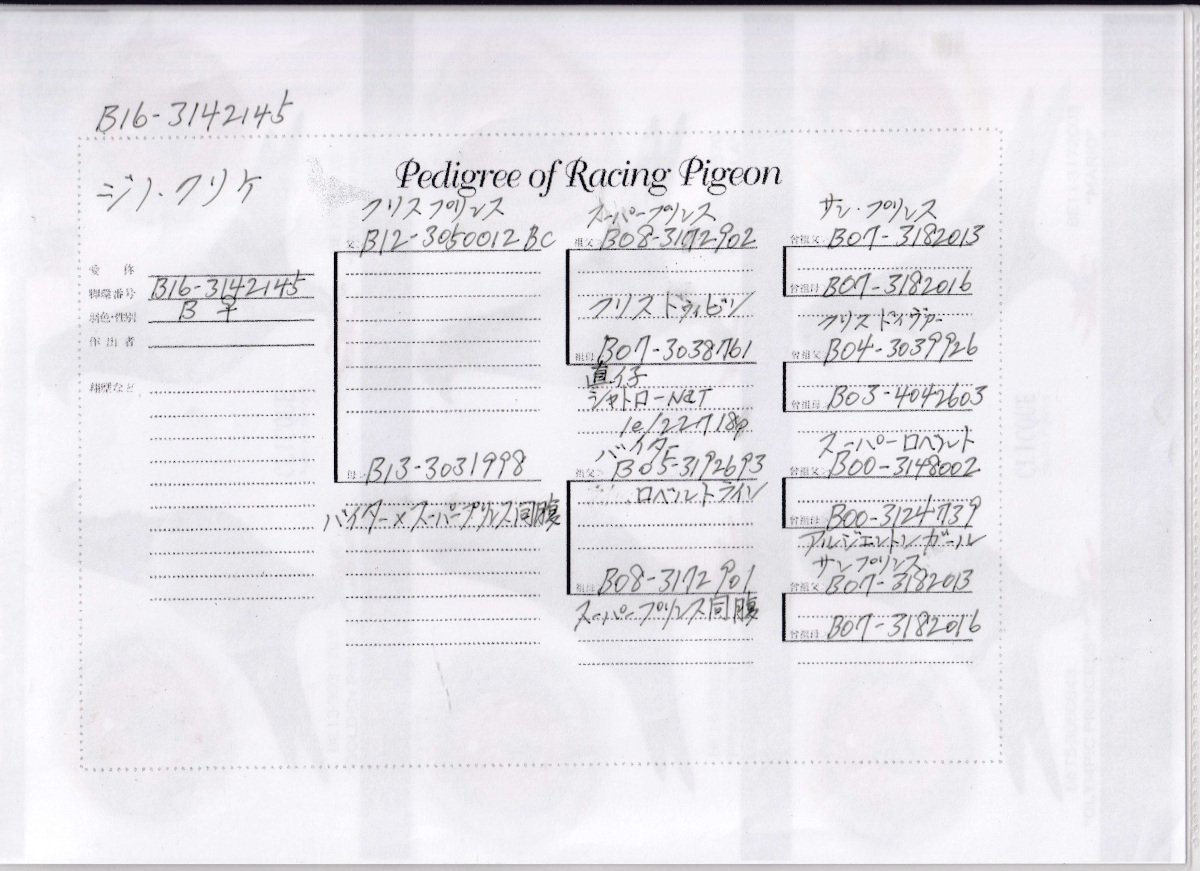 B16-3142145
Pedigree of Racing Pigeon
ジノ・クリケ
愛称
脚環番号 B16-3142145
羽色・性別 B ♀
作出者
翔歴など
クリスプリンス
父 B12-3050012 BC
母 B13-3031998
バイター×スーパープリンス同腹
スーパープリンス
祖父 B08-3172902
クリス ドゥィビン
祖母 B07-3038761
直仔
シャトローNat
1e/22718p
バイター
祖父 B05-3192693
ロベルトライン
祖母 B08-3172901
スーパープリンス同腹
サン・プリンス
曾祖父 B07-3182013
曾祖母 B07-3182016
クリス ドィヴァー
曾祖父 B04-3039926
曾祖母 B03-4042603
スーパーロベルト
曾祖父 B00-3148002
曾祖母 B00-3124739
アルジェントン ガール
サンプリンス
曾祖父 B07-3182013
曾祖母 B07-3182016